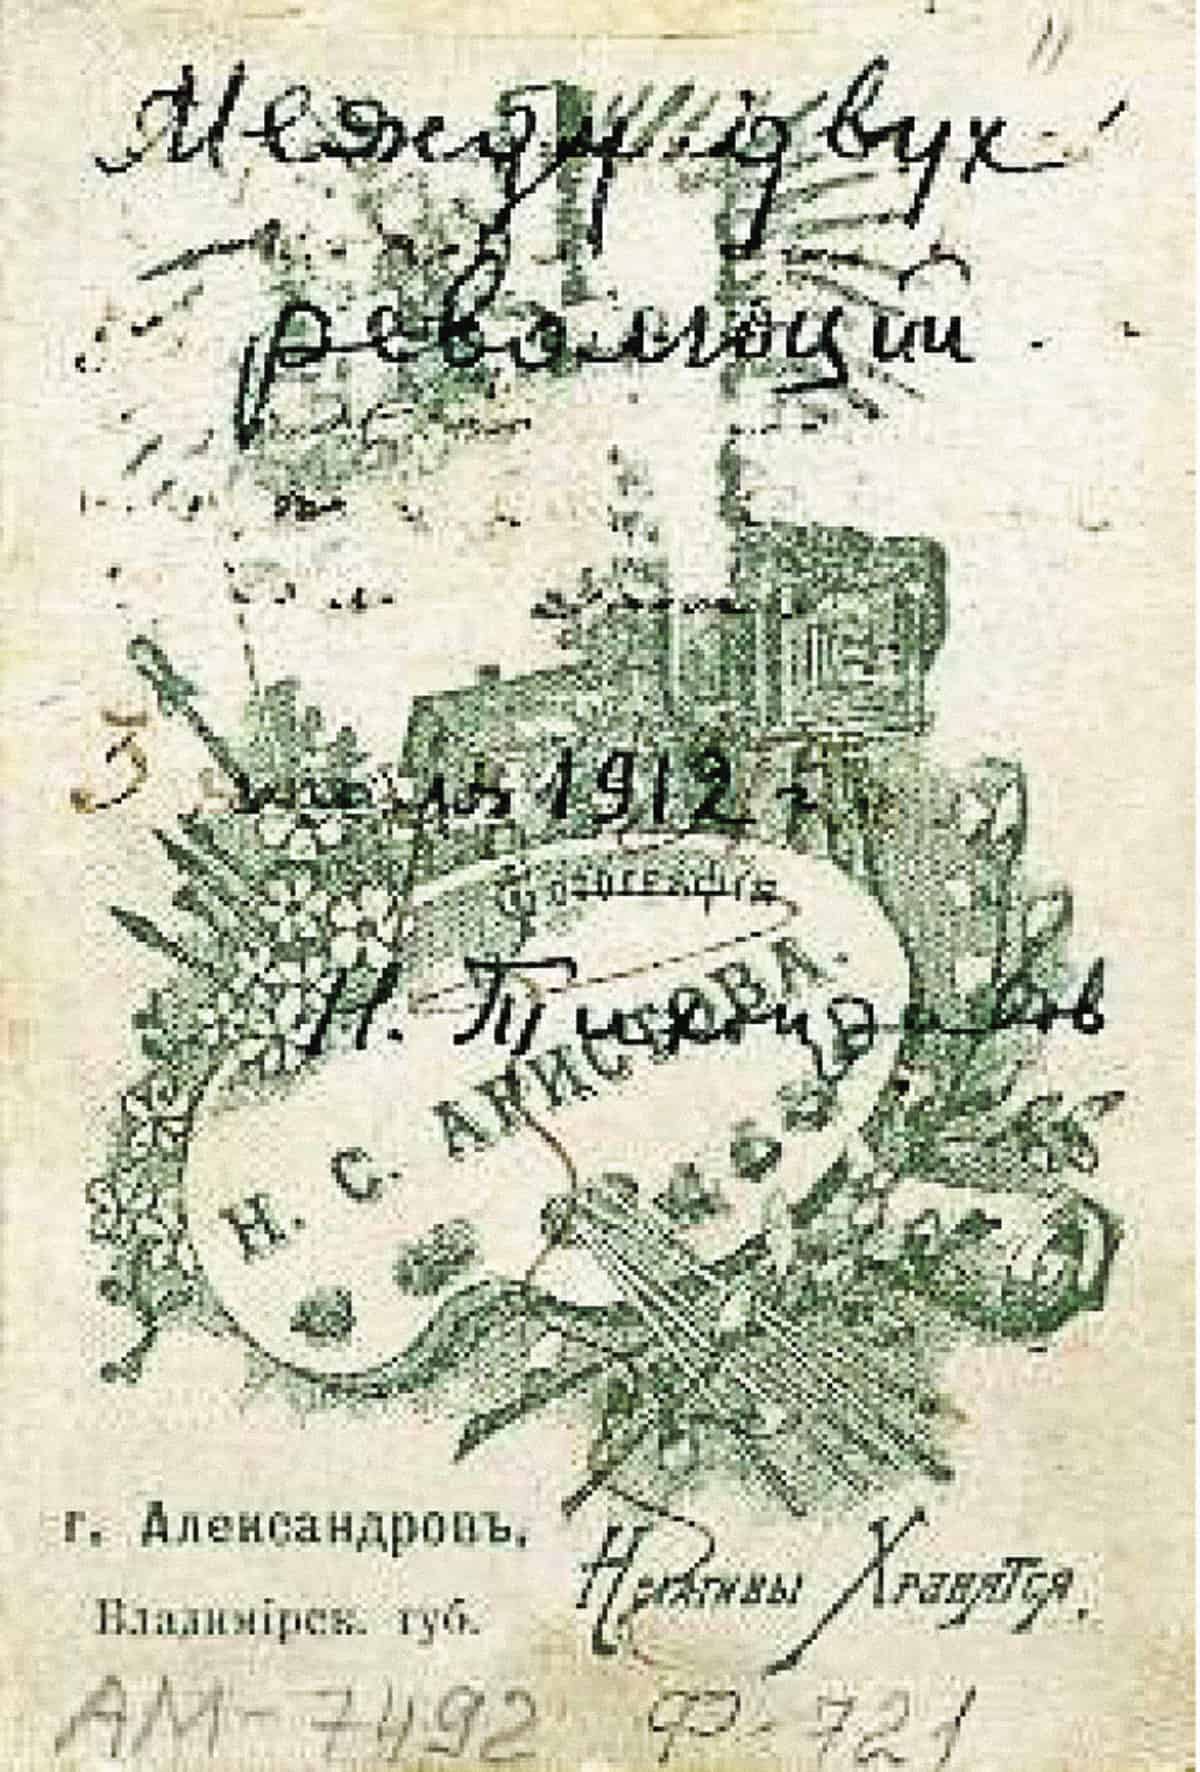 Между двух
революций.
июль 1912 г
Фотографія
Н.
Н. С. АРИСТОВА.
г. Александровъ.
Владимірск. губ.
Негативы Хранятся.
АМ-7492 Ф-721